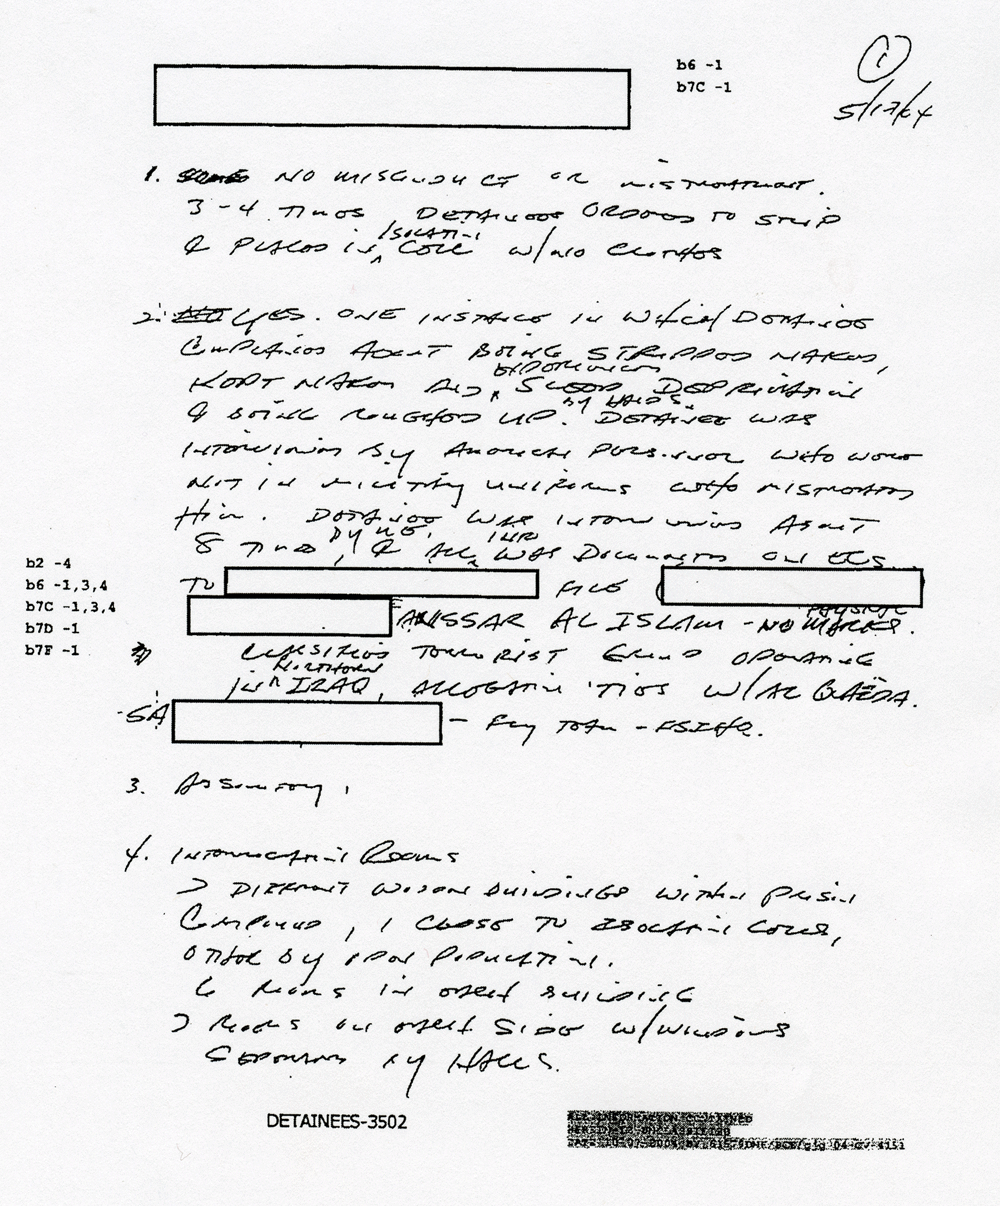 b6 -1
b7C -1
1
5/17/04
1. NO MISCONDUCT OR MISTREATMENT.
3-4 TIMES, DETAINEES ORDERED TO STRIP
& PLACED IN ISOLATION CELL W/NO CLOTHES
2. YES. ONE INSTANCE IN WHICH DETAINEE
COMPLAINED ABOUT BEING STRIPPED NAKED,
KEPT NAKED AND EXPERIENCING SLEEP DEPRIVATION
& BEING ROUGHED UP BY HANDS. DETAINEE WAS
INTERVIEWED BY AMERICAN PERSONNEL WHO WERE
NOT IN MILITARY UNIFORMS WHO MISTREATED
HIM. DETAINEE WAS INTERVIEWED ABOUT
8 TIMES BY ME, & ALL INFO WAS DOCUMENTED ON ECS
b2 -4
b6 -1,3,4
b7C -1,3,4
b7D -1
b7F -1
TO FILE
ANSSAR AL ISLAM - NO PHYSICAL MARKS.
CONSIDERED TERRORIST GROUP OPERATING
IN NORTHERN IRAQ, TIES W/AL QAEDA.
SA - FLY TEAM - FBIHQ.
3.
4. INTERROGATION ROOMS
> DIFFERENT WOODEN BUILDINGS WITHIN PRISON
COMPOUND, 1 CLOSE TO ISOLATION CELLS,
OTHER BY POPULATION.
6 ROOMS IN BUILDING
> ROOMS ON SIDE W/WINDOWS
SEPARATED BY HALLS.
DETAINEES-3502
ALL INFORMATION CONTAINED